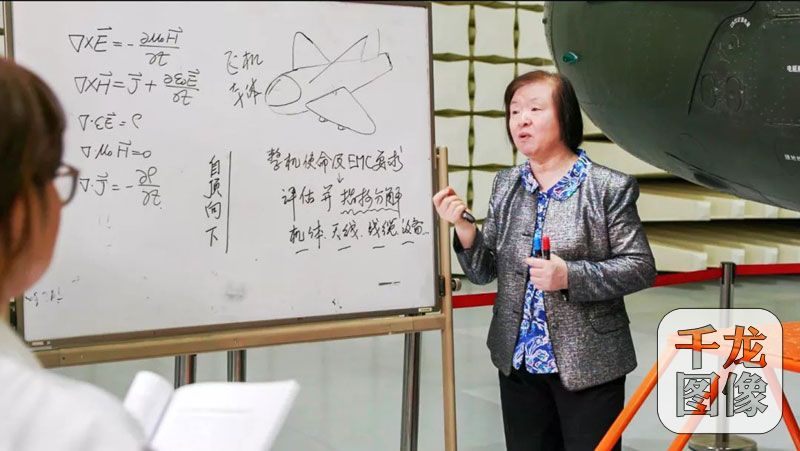 ∇×E⃗ = -∂μ₀H⃗/∂t
∇×H⃗ = J⃗ + ∂ε₀E⃗/∂t
∇·εE⃗ = ρ
∇·μ₀H⃗ = 0
∇·J⃗ = -∂ρ/∂t
飞机
自顶向下
整机使命及EMC要求
↓
评估并指标分解
机体、天线、线缆、设备...
千龙
图像